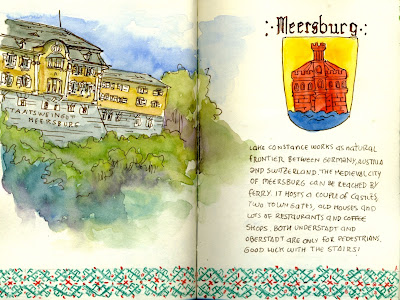 STAATSWEINGUT
MEERSBURG
·:·Meersburg·:·
LAKE CONSTANCE WORKS AS NATURAL
FRONTIER BETWEEN GERMANY, AUSTRIA
AND SWITZERLAND. THE MEDIEVAL CITY
OF MEERSBURG CAN BE REACHED BY
FERRY. IT HOSTS A COUPLE OF CASTLES,
TWO TOWN GATES, OLD HOUSES AND
LOTS OF RESTAURANTS AND COFFEE
SHOPS. BOTH UNDERSTADT AND
OBERSTADT ARE ONLY FOR PEDESTRIANS.
GOOD LUCK WITH THE STAIRS!